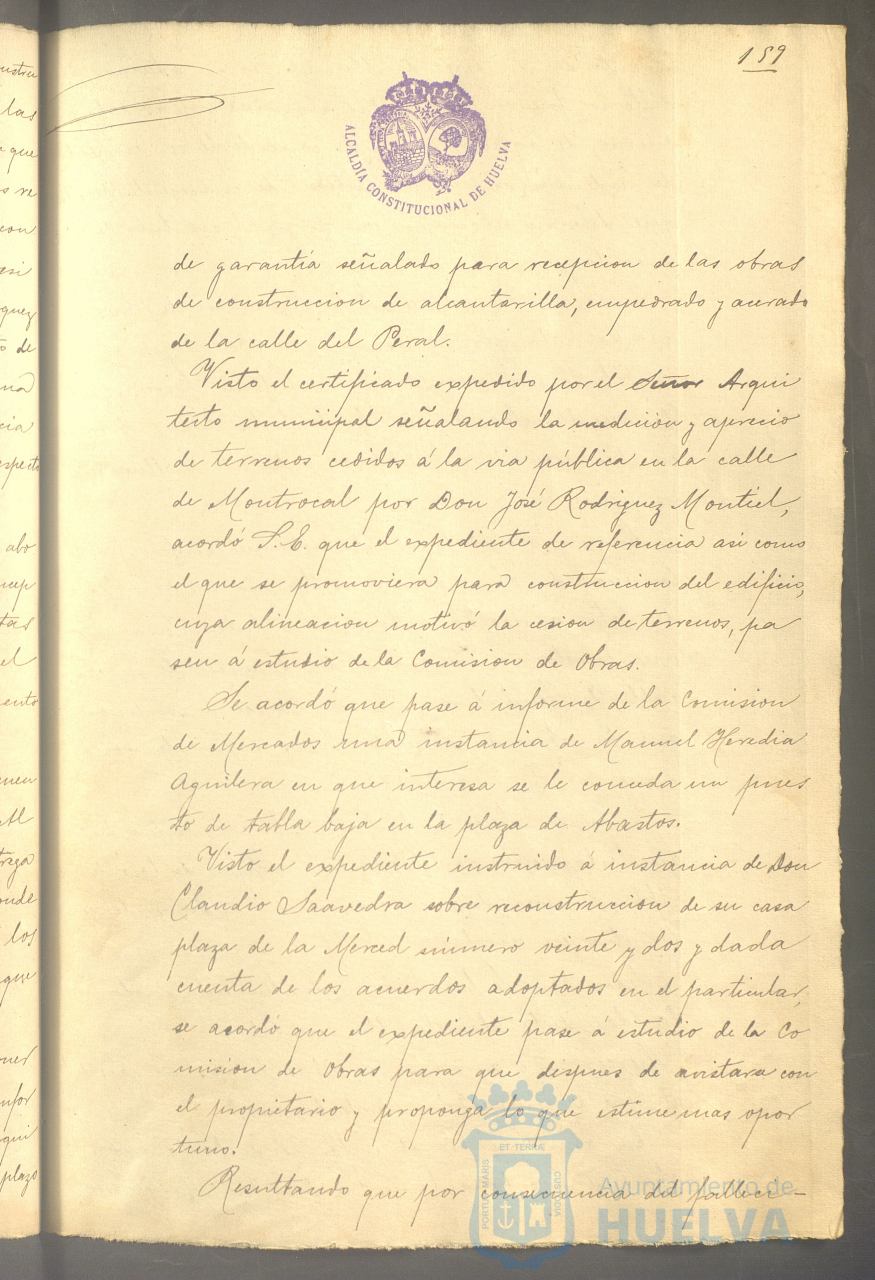 159
ALCALDÍA CONSTITUCIONAL DE HUELVA
de garantía señalado para recepcion de las obras
de construccion de alcantarilla, empedrado y acerado
de la calle del Peral.
Visto el certificado expedido por el Señor Arqui
tecto municipal señalando la medición y aprecio
de terrenos cedidos á la via pública en la calle
de Montrocal por Don José Rodriguez Montiel,
acordó S.E. que el expediente de referencia asi como
el que se promoviera para construccion del edificio,
cuya alineacion motivó la cesion de terrenos, pa
sen á estudio de la Comision de Obras.
Se acordó que pase á informe de la Comision
de Mercados una instancia de Manuel Heredia
Aguilera en que interesa se le conceda un pues
to de tabla baja en la plaza de Abastos.
Visto el expediente instruido á instancia de Don
Claudio Saavedra sobre reconstruccion de su casa
plaza de la Merced número veinte y dos y dada
cuenta de los acuerdos adoptados en el particular,
se acordó que el expediente pase á estudio de la Co
mision de Obras para que dispues de avistarse con
el propietario y proponga lo que estime mas opor
tuno.
Resultando que por consecuencia del falleci-
ET TERRA
PORTUS MARIS
CUSTODIA
Ayuntamiento de
HUELVA
ustru
las
que
re
con
esi
quez
de
cia
especto
abo
cep
tas
el
ento
trega
onde
los
que
nfor
qui
plazo